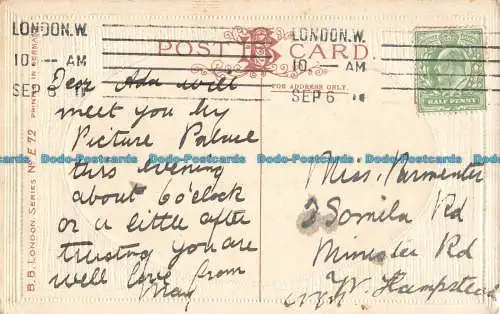 LONDON.W.
10 — AM
SEP 6
LONDON.W.
10 — AM
SEP 6
POST CARD
B
FOR ADDRESS ONLY.
HALF PENNY
B.B. LONDON. SERIES No E 72 PRINTED IN GERMANY
Dear Ada will
meet you by
Picture Palace
this evening
about 6 o'clock
or a little after
trusting you are
well love from
May
Miss. Parmenter
3 Somila Rd
Minister Rd
W. Hampstead
N.W.
Dodo-Postcards Dodo-Postcards Dodo-Postcards Dodo-Postcards Dodo-Postcards